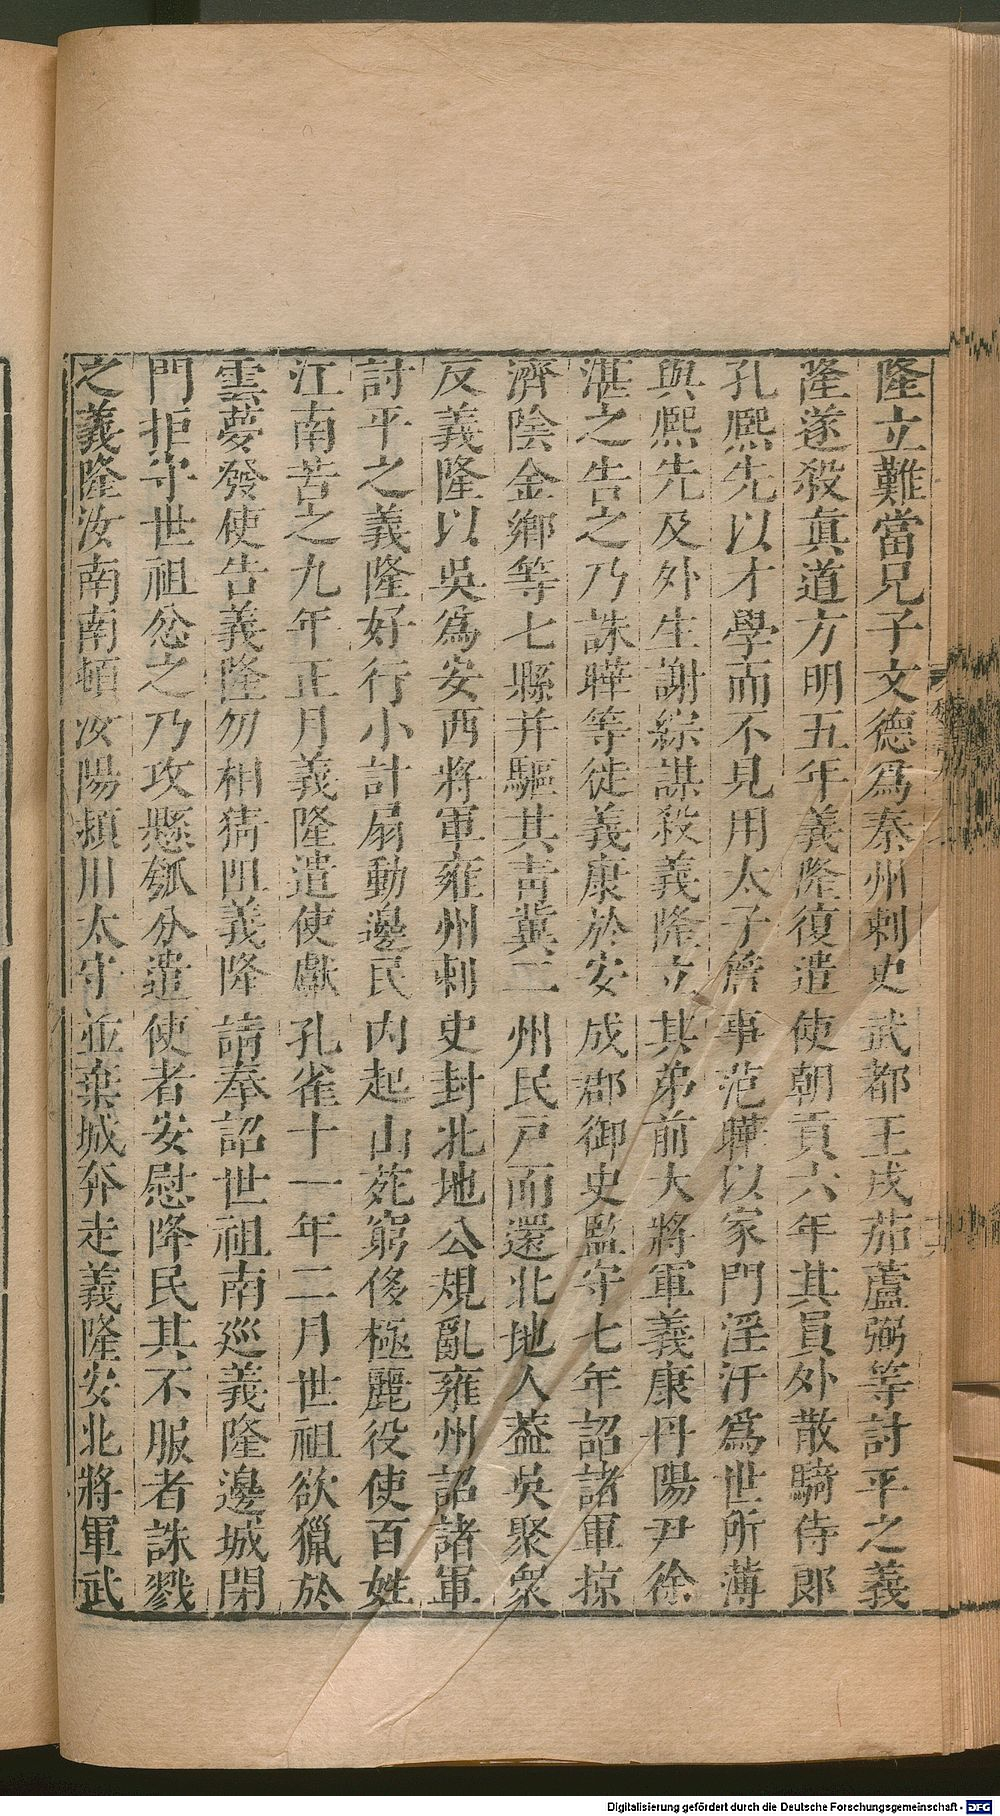 隆立難當兄子文德爲秦州刺史武都王戍茄蘆弼等討平之義
隆遂殺眞道方明五年義隆復遣使朝貢六年其員外散騎侍郎
孔熙先以才學而不見用太子詹事范曄以家門淫汙爲世所薄
與熙先及外生謝綜謀殺義隆立其弟前大將軍義康丹陽尹徐
湛之告之乃誅曄等徙義康於安成郡御史監守七年詔諸軍掠
濟陰金鄉等七縣并驅其青冀二州民戸而還北地人蓋吳聚衆
反義隆以吳爲安西將軍雍州刺史封北地公規亂雍州詔諸軍
討平之義隆好行小計扇動邊民内起山苑窮侈極麗役使百姓
江南苦之九年正月義隆遣使獻孔雀十一年二月世祖欲獵於
雲夢發使告義隆勿相猜阻義隆請奉詔世祖南巡義隆邊城閉
門拒守世祖忿之乃攻懸瓠分遣使者安慰降民其不服者誅戮
之義隆汝南南頓汝陽潁川太守並棄城奔走義隆安北將軍武
Digitalisierung gefördert durch die Deutsche Forschungsgemeinschaft - DFG